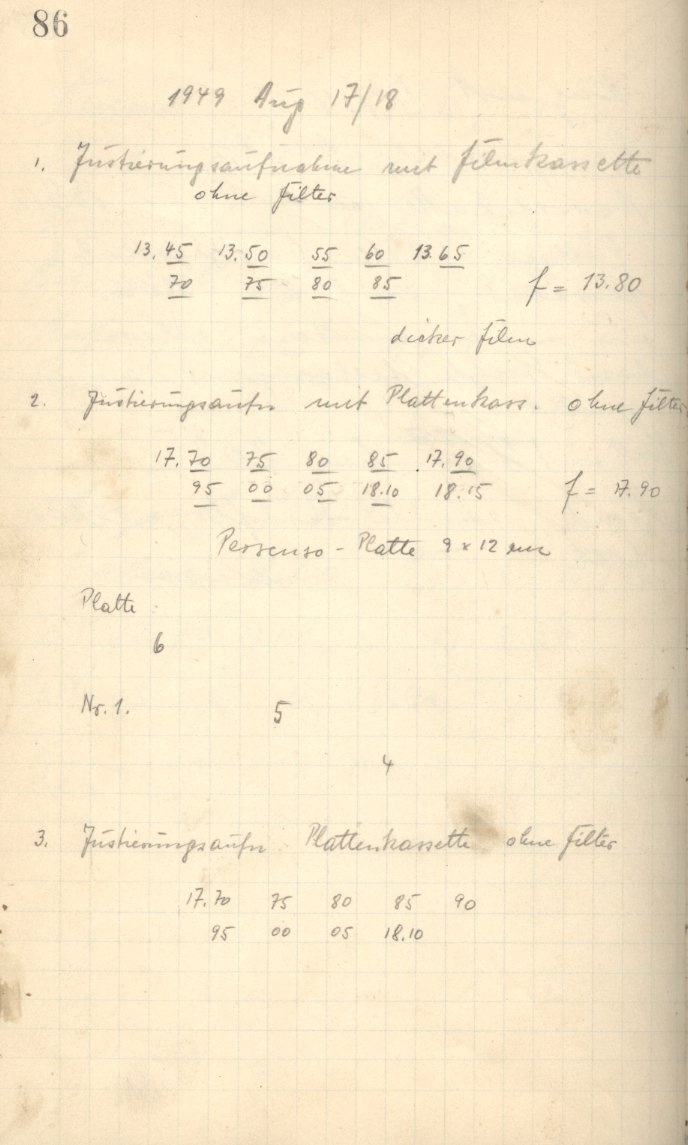 86
1949 Aug 17/18
1. Justierungsaufnahme mit Filmkassette
ohne Filter
13.45 13.50 55 60 13.65
70 75 80 85 f = 13.80
dicker Film
2. Justierungsaufn mit Plattenkass. ohne Filter
17.70 75 80 85 17.90
95 00 05 18.10 18.15 f = 17.90
Persenso - Platte 9 x 12
Platte
6
Nr. 1. 5
4
3. Justierungsaufn Plattenkassette ohne Filter
17.70 75 80 85 90
95 00 05 18.10